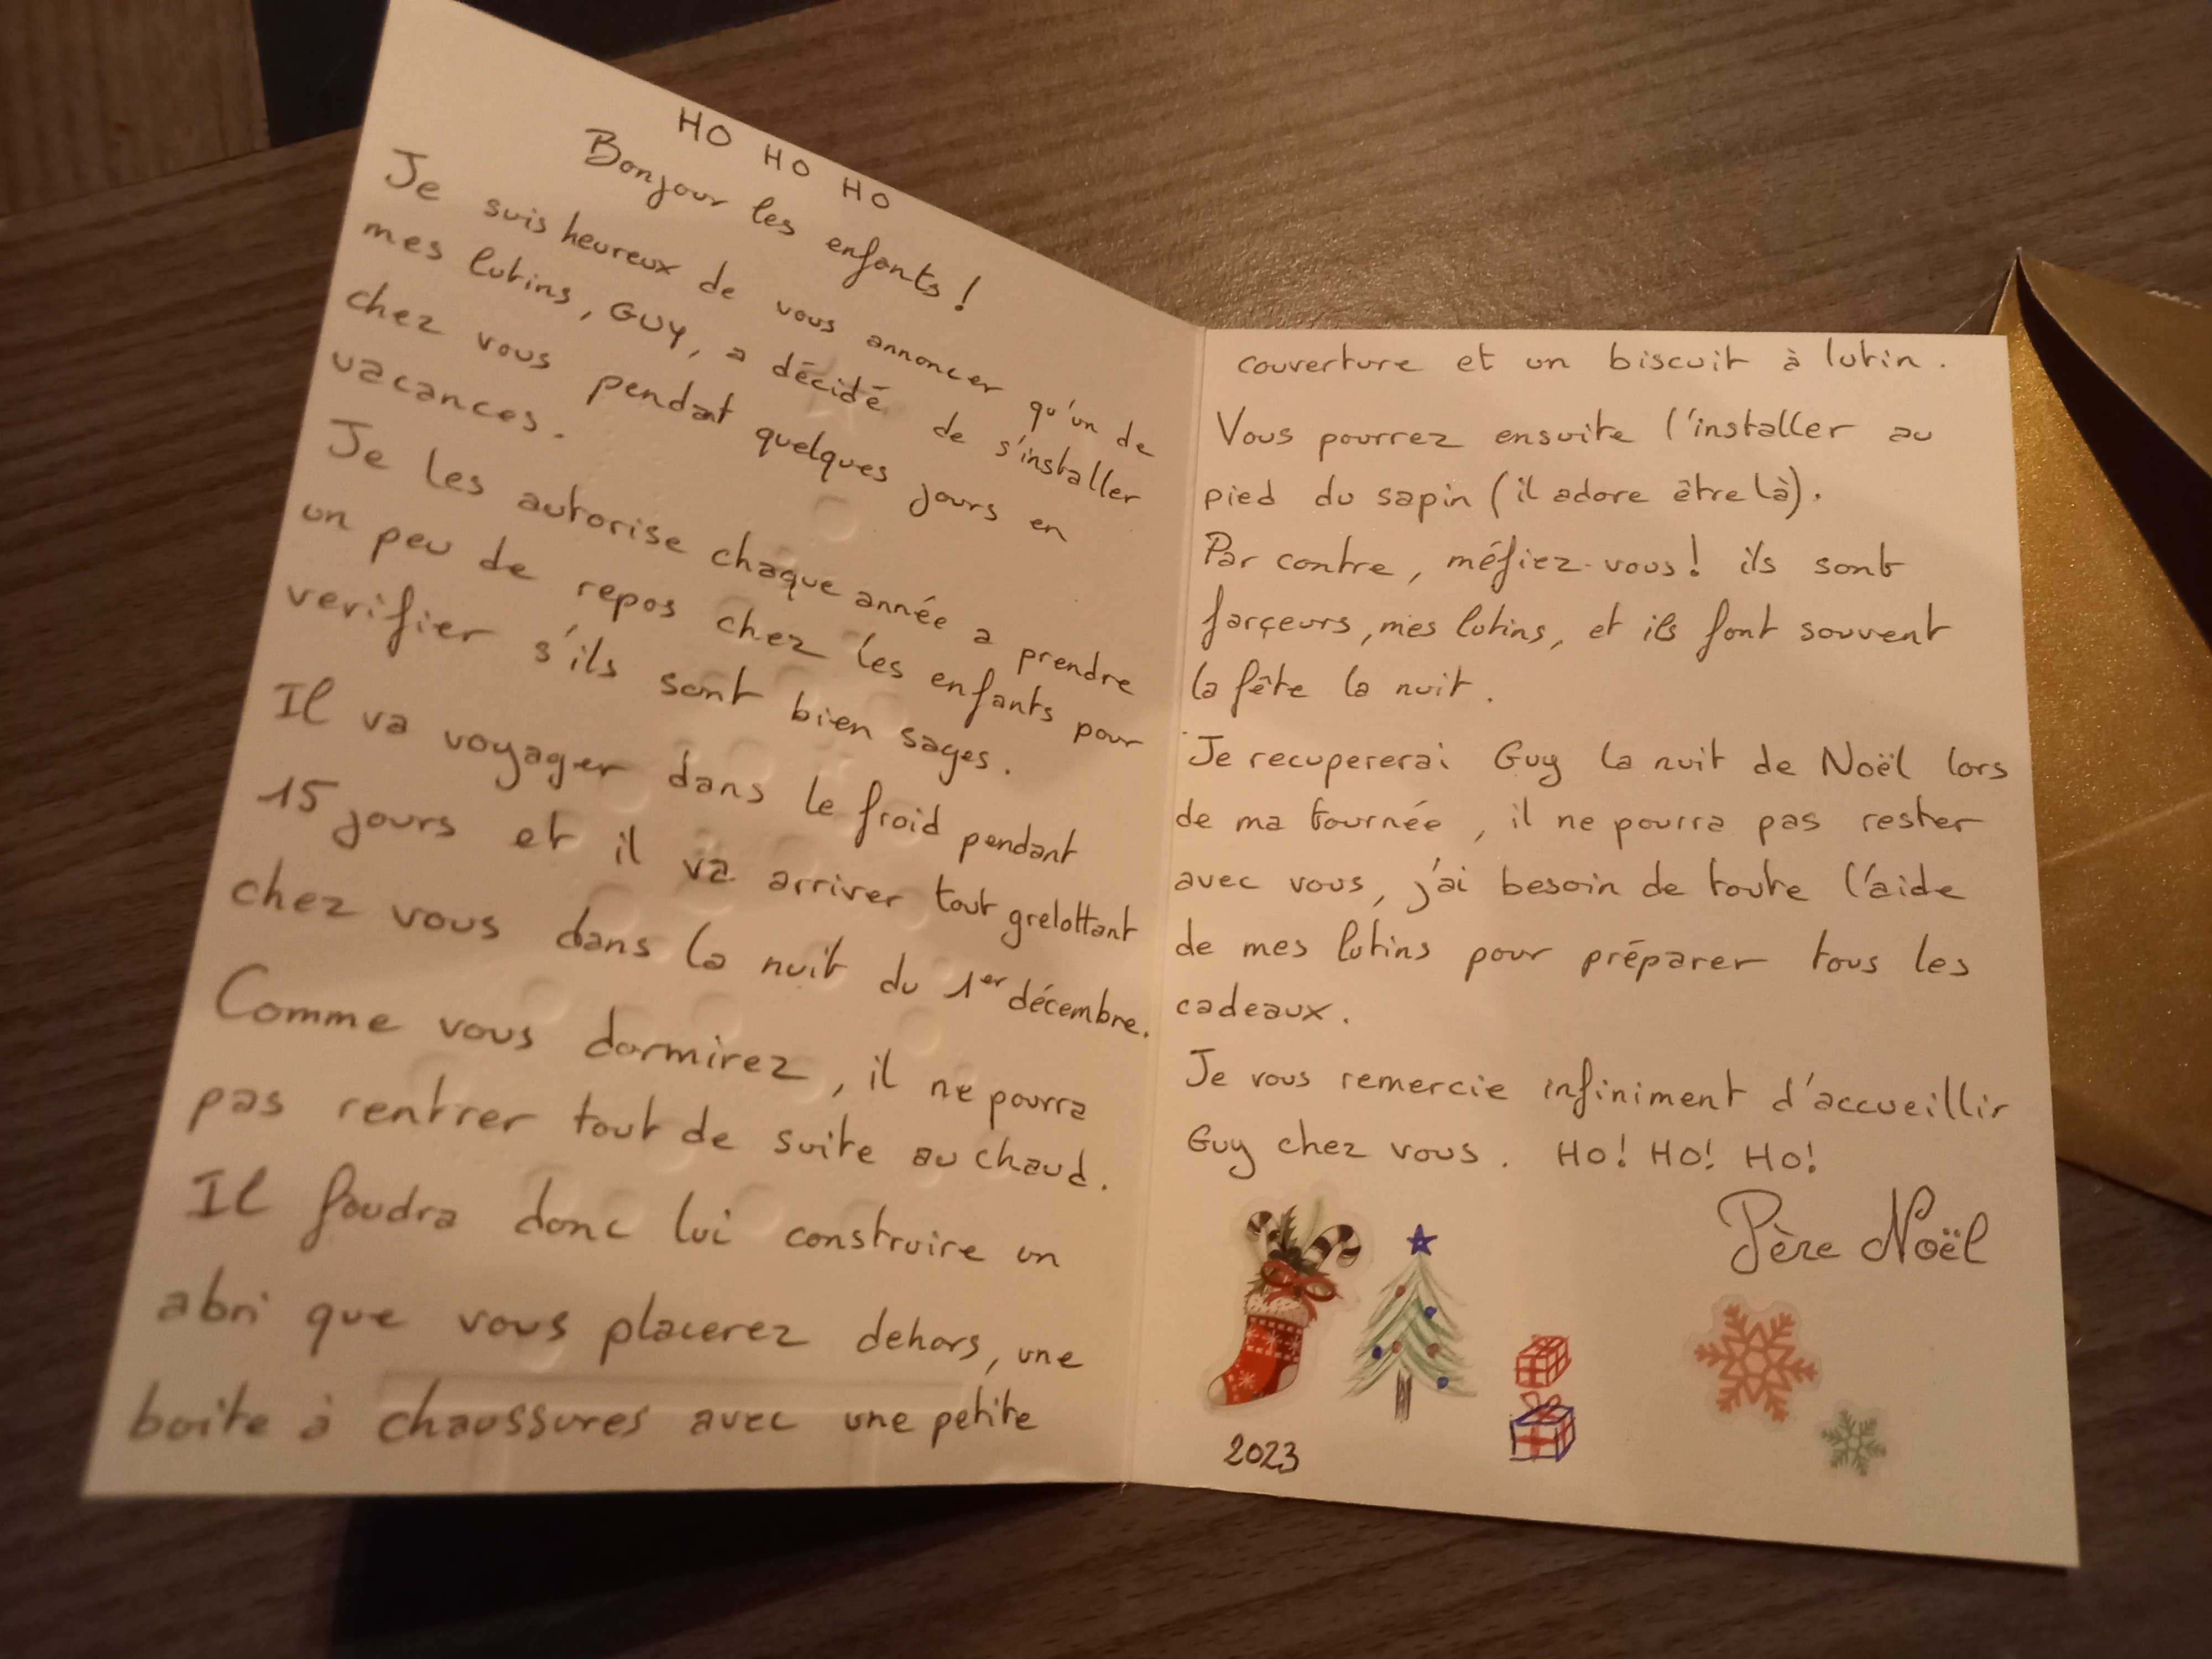 HO HO HO
Bonjour les enfants !
Je suis heureux de vous annoncer qu'un de
mes lutins, GUY, a décidé de s'installer
chez vous pendant quelques jours en
vacances.
Je les autorise chaque année a prendre
un peu de repos chez les enfants pour
verifier s'ils sont bien sages.
Il va voyager dans le froid pendant
15 jours et il va arriver tout grelottant
chez vous dans la nuit du 1er décembre.
Comme vous dormirez, il ne pourra
pas rentrer tout de suite au chaud.
Il faudra donc lui construire un
abri que vous placerez dehors, une
boite à chaussures avec une petite
couverture et un biscuit à lutin.
Vous pourrez ensuite l'installer au
pied du sapin (il adore être là).
Par contre, méfiez-vous ! ils sont
farçeurs, mes lutins, et ils font souvent
la fête la nuit.
Je recupererai Guy la nuit de Noël lors
de ma tournée, il ne pourra pas rester
avec vous, j'ai besoin de toute l'aide
de mes lutins pour préparer tous les
cadeaux.
Je vous remercie infiniment d'accueillir
Guy chez vous. HO! HO! HO!
Père Noël
2023